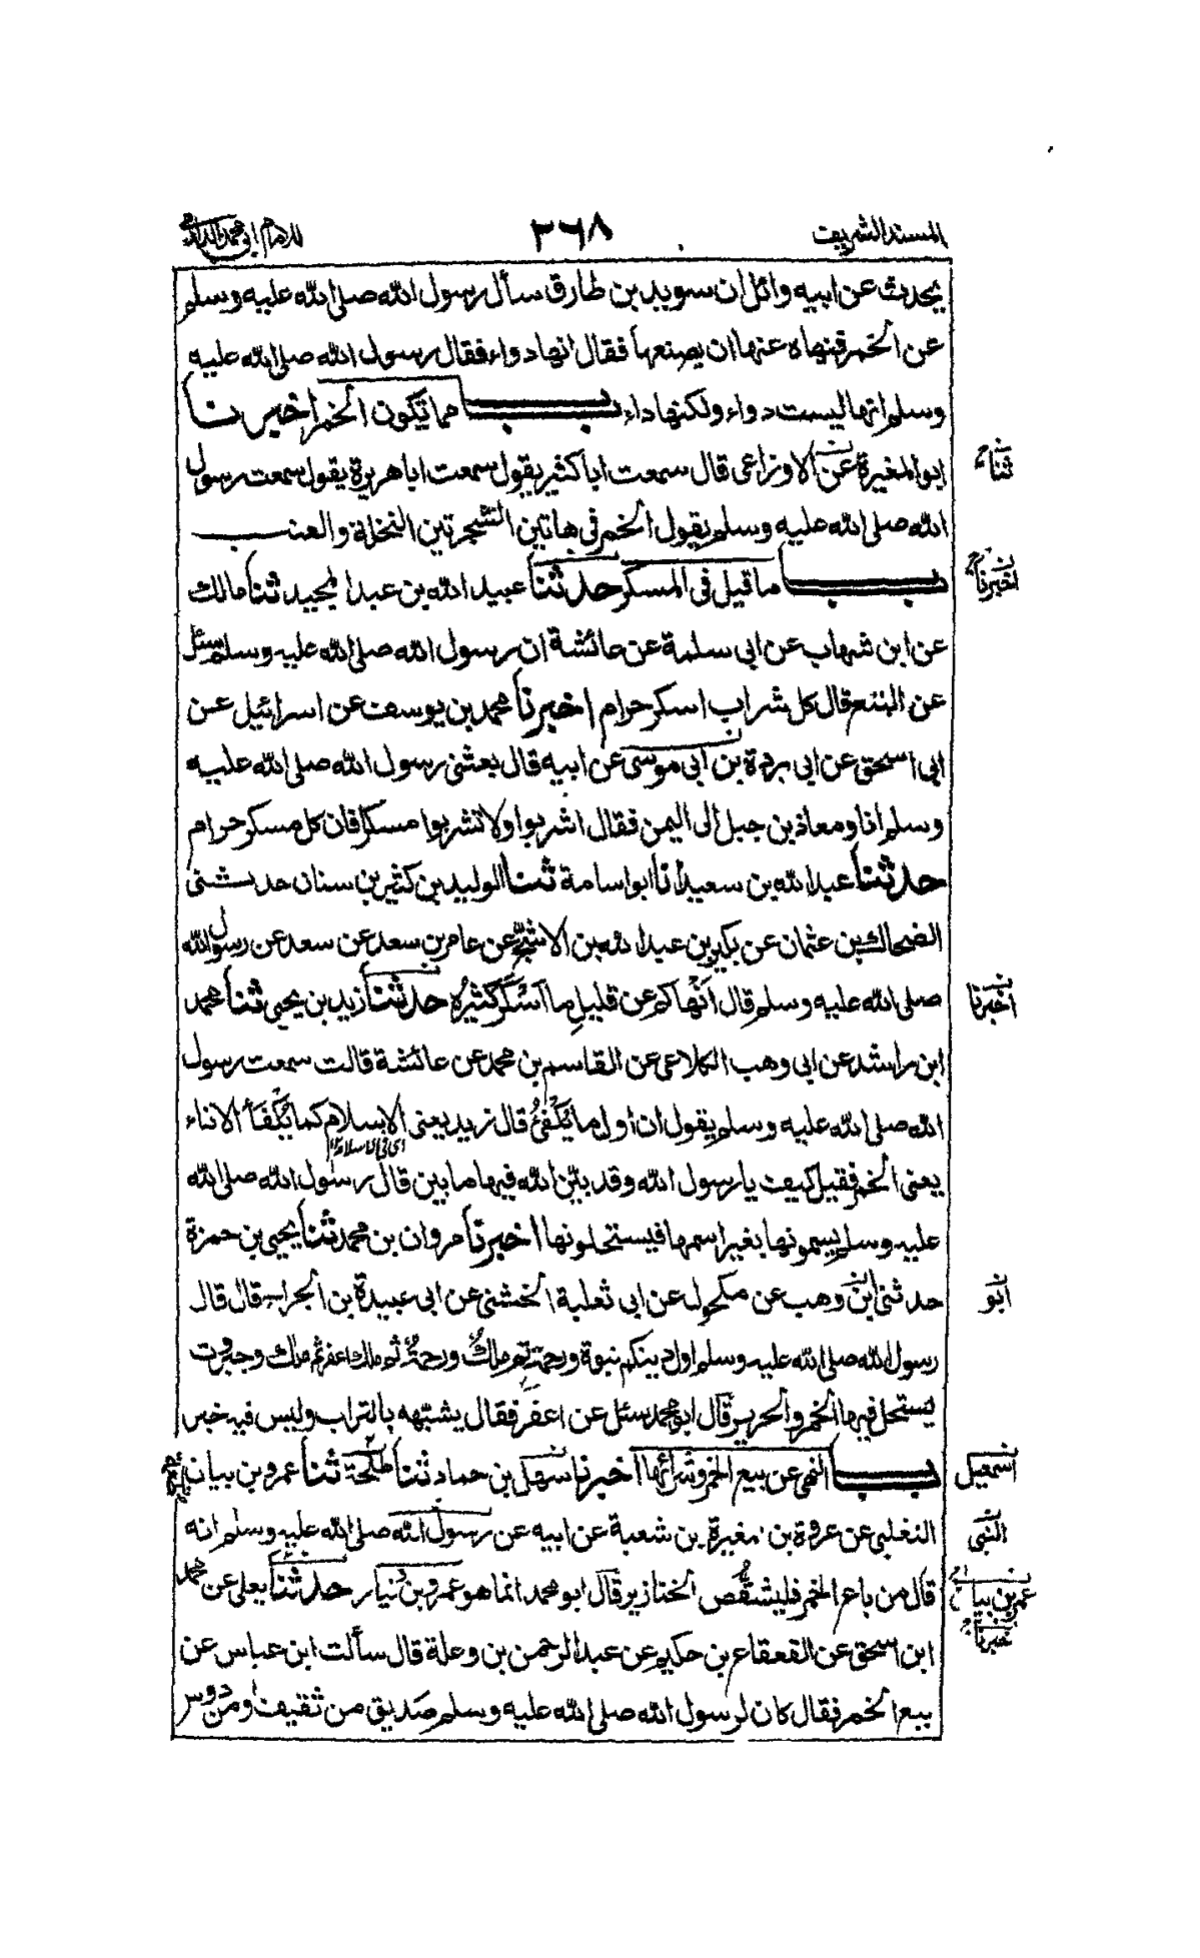 المسند الشريف ٢٦٨ للامام ابى محمد الدارمى
يحدث عن ابيه وائل ان سويد بن طارق سأل رسول الله صلى الله عليه وسلم
عن الخمر فنهاه عنها ان يصنعها فقال انها دواء فقال رسول الله صلى الله عليه
وسلم انها ليست دواء ولكنها داء باب مما تكون الخمر اخبرنا
ابو المغيرة عن الاوزاعى قال سمعت ابا كثير يقول سمعت ابا هريرة يقول سمعت رسول
ثنا
الله صلى الله عليه وسلم يقول الخمر فى هاتين الشجرتين النخلة والعنب
باب ما قيل فى المسكر حدثنا عبيد الله بن عبد المجيد ثنا مالك
اخبرنا
عن ابن شهاب عن ابى سلمة عن عائشة ان رسول الله صلى الله عليه وسلم سئل
عن البتع قال كل شراب اسكر حرام اخبرنا محمد بن يوسف عن اسرائيل عن
ابى اسحق عن ابى بردة بن ابى موسى عن ابيه قال بعثنى رسول الله صلى الله عليه
وسلم انا ومعاذ بن جبل الى اليمن فقال اشربوا ولا تشربوا مسكرا فان كل مسكر حرام
حدثنا عبد الله بن سعيد انا ابو اسامة ثنا الوليد بن كثير بن سنان حدثنى
الضحاك بن عثمان عن بكير بن عبد الله بن الاشج عن عامر بن سعد عن سعد عن رسول الله
صلى الله عليه وسلم قال أنهاكم عن قليل ما أسكر كثيره حدثنا زيد بن يحيى ثنا محمد
اخبرنا
ابن راشد عن ابى وهب الكلاعى عن القاسم بن محمد عن عائشة قالت سمعت رسول
الله صلى الله عليه وسلم يقول ان أول ما يكفئ قال زيد يعنى الاسلام كما يكفأ الاناء
اى فى الاسلام
يعنى الخمر فقيل كيف يا رسول الله وقد بين الله فيها ما بين قال رسول الله صلى الله
عليه وسلم يسمونها بغير اسمها فيستحلونها اخبرنا مروان بن محمد ثنا يحيى بن حمزة
حدثنى ابن وهب عن مكحول عن ابى ثعلبة الخشنى عن ابى عبيدة بن الجراح قال قال
ابو
رسول الله صلى الله عليه وسلم اول دينكم نبوة ورحمة ثم ملك ورحمة ثم ملك اعفر ثم ملك وجبروت
يستحل فيها الخمر والحرير قال ابو محمد سئل عن اعفر فقال يشبهه بالتراب وليس فيه خير
باب النهى عن بيع الخمر وشرائها اخبرنا سهل بن حماد ثنا طلحة ثنا عمرو بن بيان
اسمعيل
التغلبى عن عروة بن مغيرة بن شعبة عن ابيه عن رسول الله صلى الله عليه وسلم انه
النبى
قال من باع الخمر فليشقص الخنازير قال ابو محمد انما هو عمرو بن دينار حدثنا يعلى عن محمد
عمر بن بيان
اخبرنا
ابن اسحق عن القعقاع بن حكيم عن عبد الرحمن بن وعلة قال سألت ابن عباس عن
بيع الخمر فقال كان لرسول الله صلى الله عليه وسلم صديق من ثقيف او من دوس